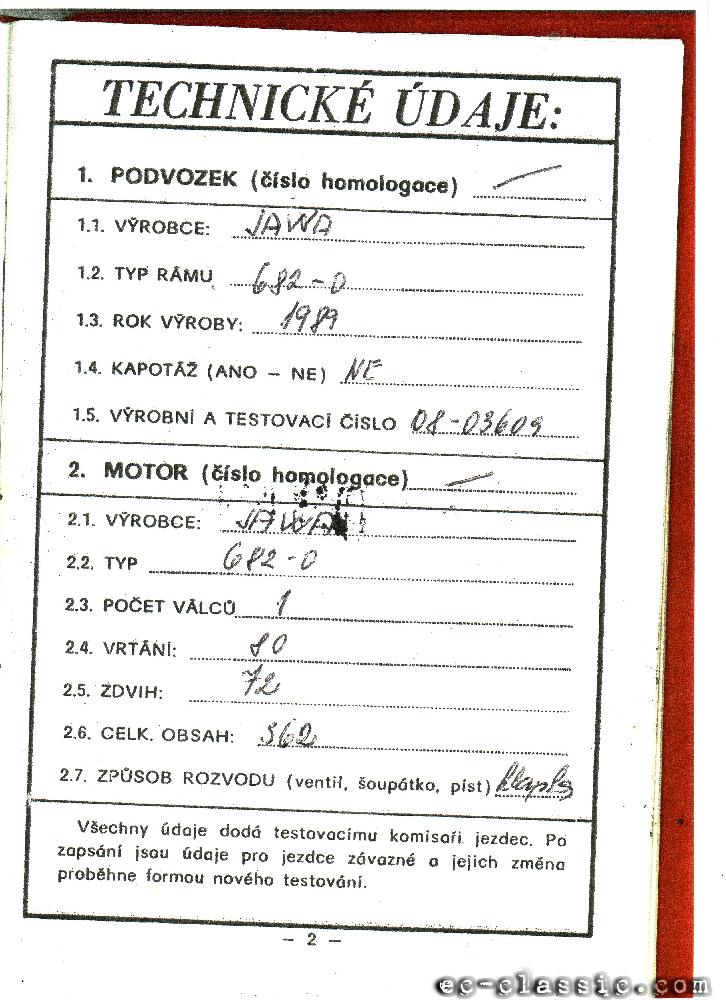 TECHNICKÉ ÚDAJE:
1. PODVOZEK (číslo homologace) —
1.1. VÝROBCE: JAWA
1.2. TYP RÁMU 682-0
1.3. ROK VÝROBY: 1989
1.4. KAPOTÁŽ (ANO – NE) NE
1.5. VÝROBNÍ A TESTOVACÍ ČÍSLO 08-03609
2. MOTOR (číslo homologace) —
2.1. VÝROBCE: JAWA
2.2. TYP 682-0
2.3. POČET VÁLCŮ 1
2.4. VRTÁNÍ: 80
2.5. ZDVIH: 72
2.6. CELK. OBSAH: 362
2.7. ZPŮSOB ROZVODU (ventil, šoupátko, píst) klapka
Všechny údaje dodá testovacímu komisaři jezdec. Po
zapsání jsou údaje pro jezdce závazné a jejich změna
proběhne formou nového testování.
– 2 –
ec-classic.com